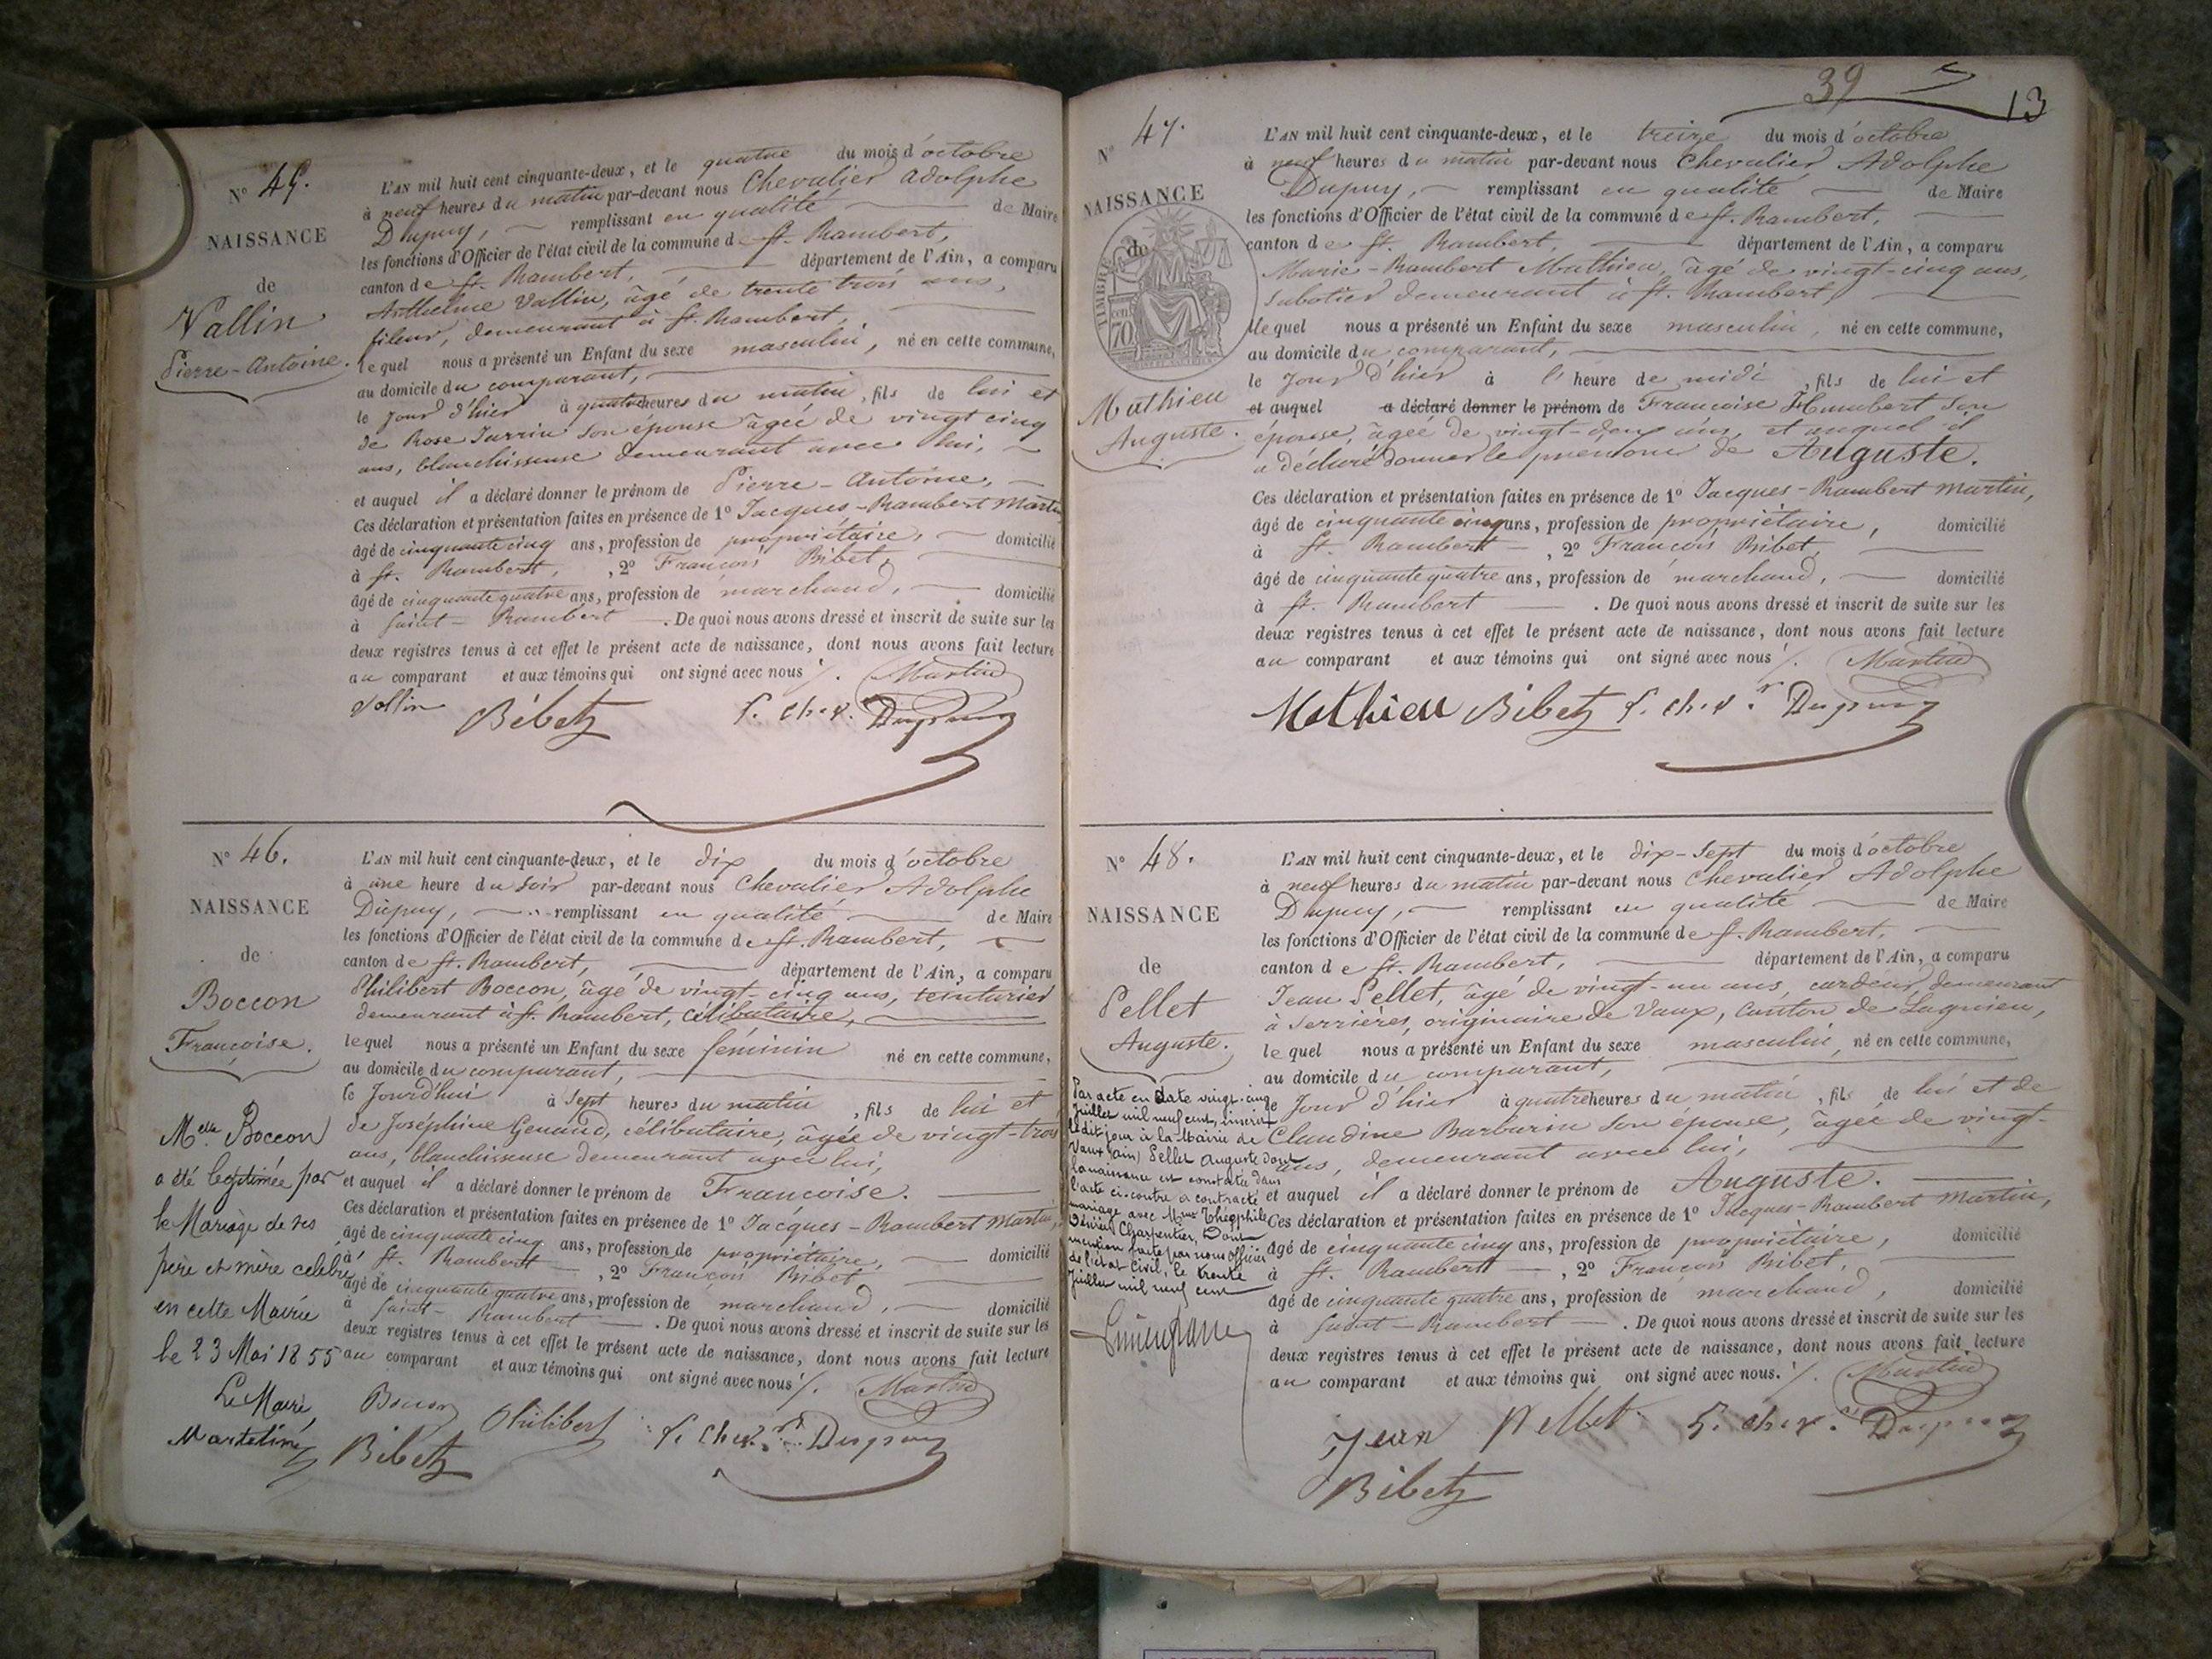 N° 45.
NAISSANCE
de
Vallin
Pierre-Antoine.
L'AN mil huit cent cinquante-deux, et le quatre du mois d'octobre
à neuf heures du matin par-devant nous Chevalier Adolphe
Dupuy, remplissant en qualité de Maire
les fonctions d'Officier de l'état civil de la commune de St. Rambert,
canton de St. Rambert, département de l'Ain, a comparu
Anthelme Vallin, âgé de trente trois ans,
fileur, demeurant à St. Rambert,
lequel nous a présenté un Enfant du sexe masculin, né en cette commune,
au domicile du comparant,
le jour d'hier à quatre heures du matin, fils de lui et
de Rose Jurrin son épouse âgée de vingt cinq
ans, blanchisseuse demeurant avec lui,
et auquel il a déclaré donner le prénom de Pierre-Antoine,
Ces déclaration et présentation faites en présence de 1° Jacques-Rambert Martin
âgé de cinquante cinq ans, profession de propriétaire, domicilié
à St. Rambert, , 2° François Bibet,
âgé de cinquante quatre ans, profession de marchand, domicilié
à Saint-Rambert . De quoi nous avons dressé et inscrit de suite sur les
deux registres tenus à cet effet le présent acte de naissance, dont nous avons fait lecture
au comparant et aux témoins qui ont signé avec nous ./. Martin
Vallin Bibet f. chev. Dupuy
N° 46.
NAISSANCE
de
Boccon
Françoise.
Melle Boccon
a été légitimée par
le Mariage de ses
père et mère célébré
en cette Mairie
le 23 Mai 1855
Le Maire,
Martelin
L'AN mil huit cent cinquante-deux, et le dix du mois d'octobre
à une heure du soir par-devant nous Chevalier Adolphe
Dupuy, remplissant en qualité de Maire
les fonctions d'Officier de l'état civil de la commune de St. Rambert,
canton de St. Rambert, département de l'Ain, a comparu
Philibert Boccon, âgé de vingt-cinq ans, teinturier
demeurant à St. Rambert, célibataire,
lequel nous a présenté un Enfant du sexe féminin né en cette commune,
au domicile du comparant,
le Jourd'hui à Sept heures du matin, fils de lui et
de Joséphine Genaud, célibataire, âgée de vingt-trois
ans, blanchisseuse demeurant avec lui,
et auquel il a déclaré donner le prénom de Françoise.
Ces déclaration et présentation faites en présence de 1° Jacques-Rambert Martin,
âgé de cinquante cinq ans, profession de propriétaire, domicilié
à St. Rambert , 2° François Bibet
âgé de cinquante quatre ans, profession de marchand, domicilié
à Saint-Rambert . De quoi nous avons dressé et inscrit de suite sur les
deux registres tenus à cet effet le présent acte de naissance, dont nous avons fait lecture
au comparant et aux témoins qui ont signé avec nous ./. Martin
Bocon Philibert f. chev. r Dupuy
Bibet
39
13
N° 47.
NAISSANCE
de
TIMBRE
cen 70
Mathieu
Auguste.
L'AN mil huit cent cinquante-deux, et le treize du mois d'octobre
à neuf heures du matin par-devant nous Chevalier Adolphe
Dupuy, remplissant en qualité de Maire
les fonctions d'Officier de l'état civil de la commune de St. Rambert,
canton de St. Rambert, département de l'Ain, a comparu
Marie-Rambert Mathieu, âgé de vingt-cinq ans,
Sabotier demeurant à St. Rambert,
lequel nous a présenté un Enfant du sexe masculin, né en cette commune,
au domicile du comparant,
le Jour d'hier à l'heure de midi, fils de lui et
et auquel a déclaré donner le prénom de Françoise Humbert son
épouse, âgée de vingt-deux ans, et auquel il
a déclaré donner le prénom de Auguste.
Ces déclaration et présentation faites en présence de 1° Jacques-Rambert Martin,
âgé de cinquante cinq ans, profession de propriétaire, domicilié
à St. Rambert , 2° François Bibet,
âgé de cinquante quatre ans, profession de marchand, domicilié
à St. Rambert . De quoi nous avons dressé et inscrit de suite sur les
deux registres tenus à cet effet le présent acte de naissance, dont nous avons fait lecture
au comparant et aux témoins qui ont signé avec nous ./. Martin
Mathieu Bibet f. chev. r Dupuy
N° 48.
NAISSANCE
de
Pellet
Auguste.
Par acte en date vingt-cinq
Juillet mil neuf cent, inscrit
le dit jour à la Mairie de
Vaux (Ain) Pellet Auguste dont
la naissance est constatée dans
l'acte ci-contre a contracté
mariage avec Mme Théophile
Désirée Charpentier, Dont
mention faite par nous officier
de l'état civil, le trente
Juillet mil neuf cent
L'AN mil huit cent cinquante-deux, et le dix-Sept du mois d'octobre
à neuf heures du matin par-devant nous Chevalier Adolphe
Dupuy, remplissant en qualité de Maire
les fonctions d'Officier de l'état civil de la commune de St. Rambert,
canton de St. Rambert, département de l'Ain, a comparu
Jean Pellet, âgé de vingt-un ans, cardeur, demeurant
à Serrières, originaire de Vaux, Canton de Lagnieu,
lequel nous a présenté un Enfant du sexe masculin, né en cette commune,
au domicile du comparant,
le Jour d'hier à quatre heures du matin, fils de lui et de
Claudine Barbarin son épouse, âgée de vingt-
ans, demeurant avec lui,
et auquel il a déclaré donner le prénom de Auguste.
Ces déclaration et présentation faites en présence de 1° Jacques-Rambert Martin,
âgé de cinquante cinq ans, profession de propriétaire, domicilié
à St. Rambert , 2° François Bibet,
âgé de cinquante quatre ans, profession de marchand, domicilié
à Saint-Rambert . De quoi nous avons dressé et inscrit de suite sur les
deux registres tenus à cet effet le présent acte de naissance, dont nous avons fait lecture
au comparant et aux témoins qui ont signé avec nous. ./. Martin
Jean Pellet f. chev. r Dupuy
Bibet